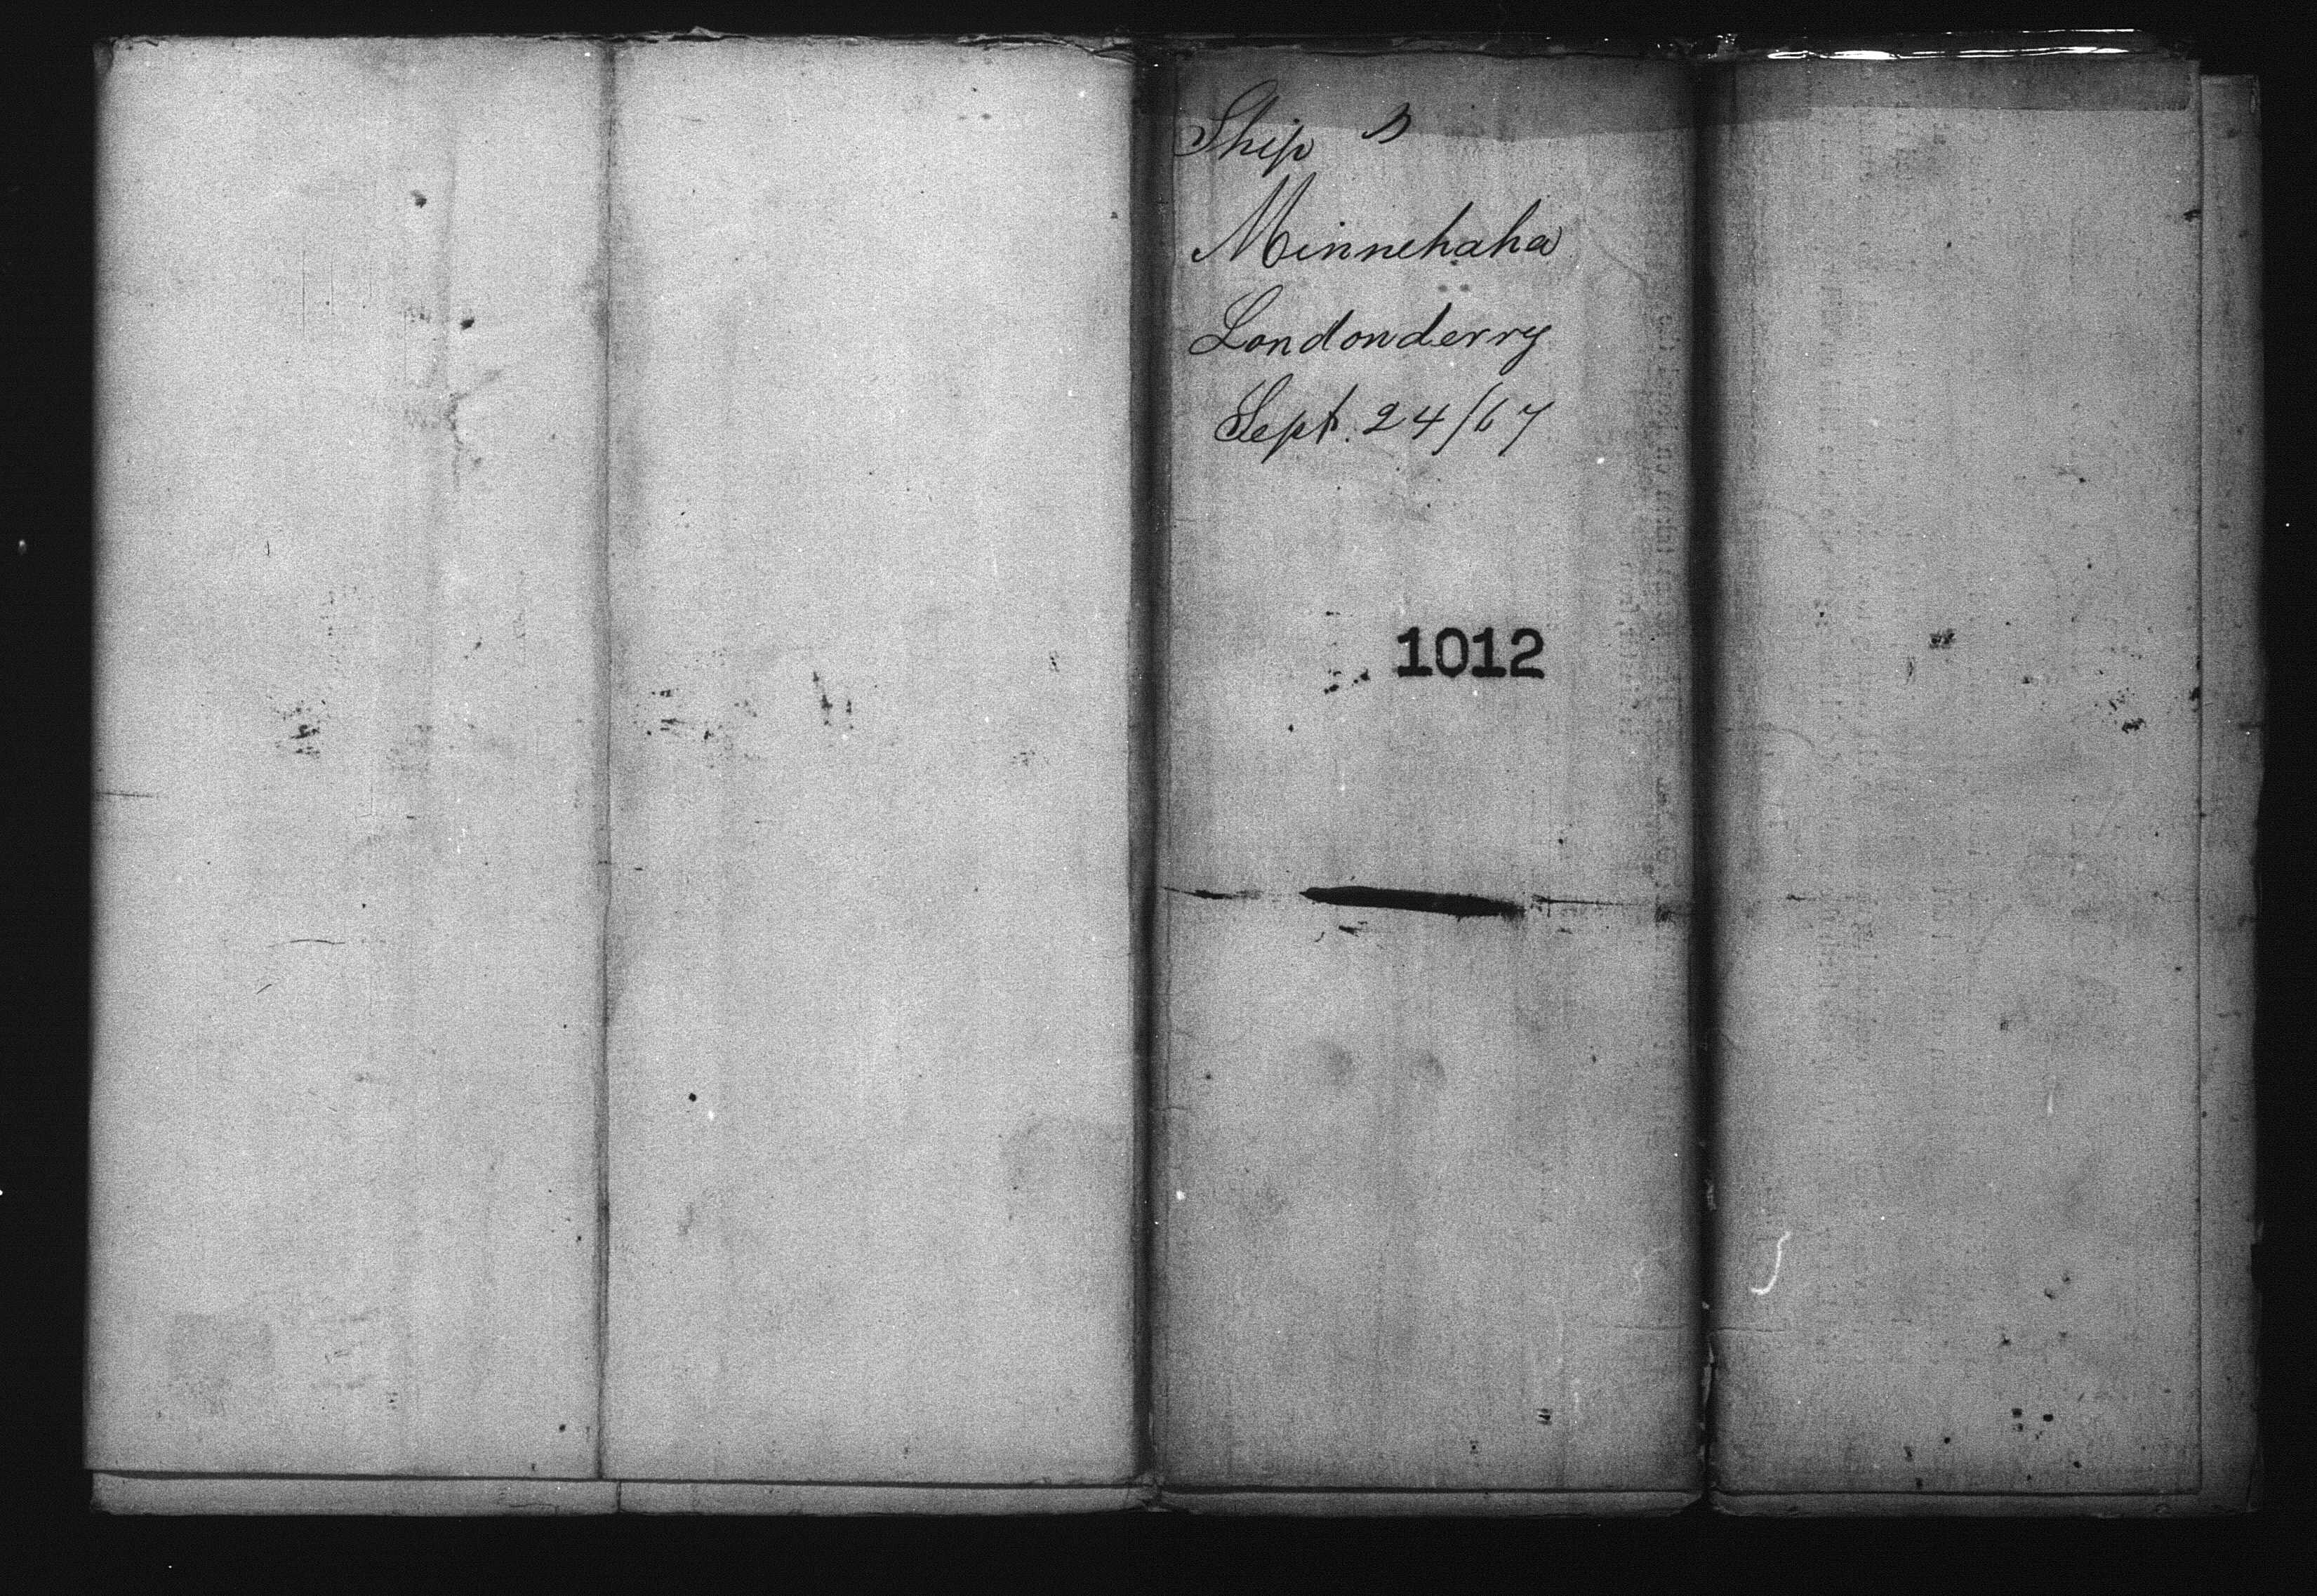 Ship
Minnehaha
Londonderry
Sept. 24/67
1012